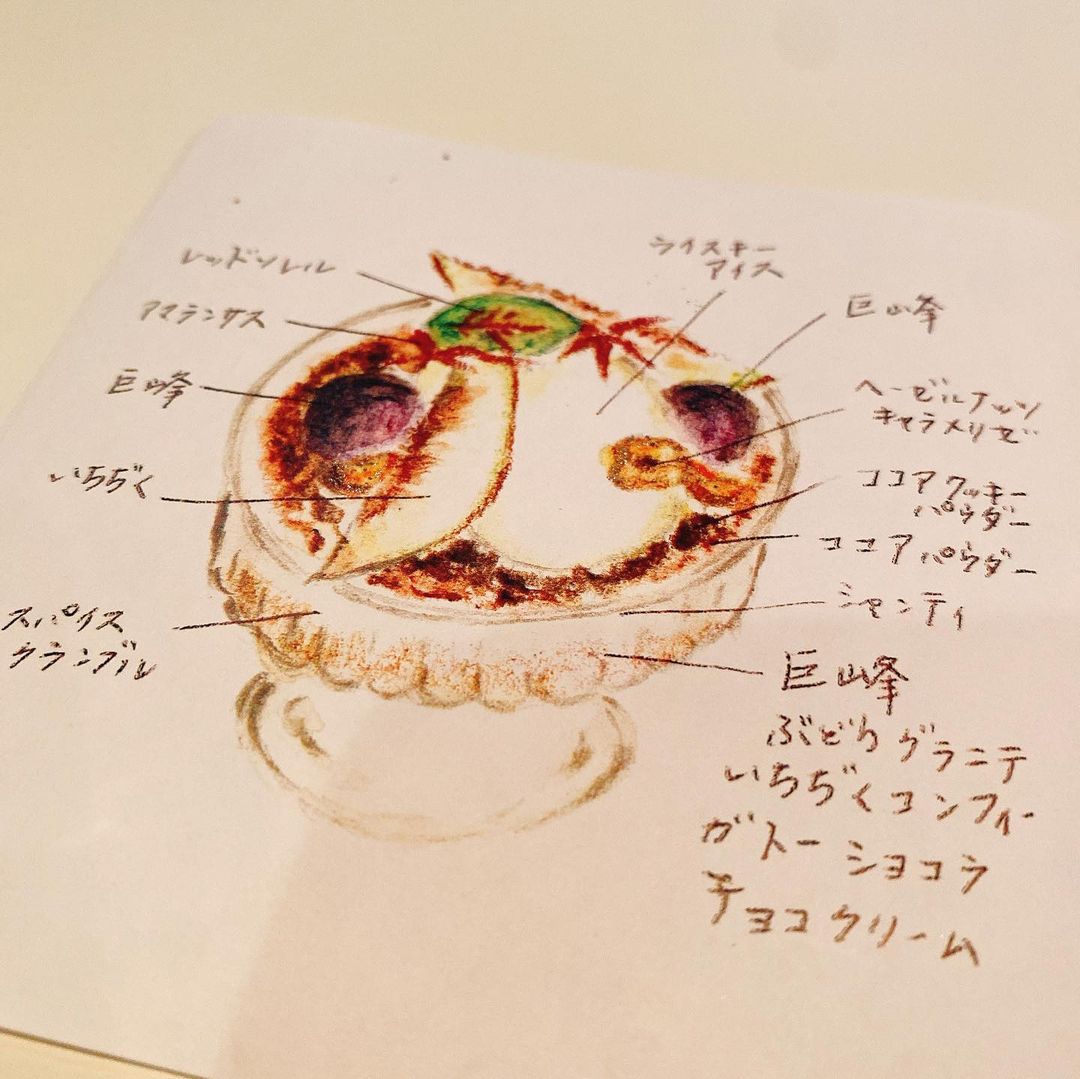 レッドソレル
アマランサス
巨峰
いちぢく
スパイス
クランブル
ウイスキー
アイス
巨峰
ヘーゼルナッツ
キャラメリゼ
ココアクッキー
パウダー
ココアパウダー
シャンティ
巨峰
ぶどうグラニテ
いちぢくコンフィー
ガトーショコラ
チョコクリーム